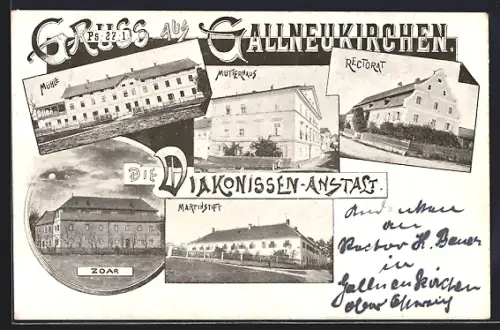 GRUSS AUS GALLNEUKIRCHEN.
Ps. 27.1
MÜHLE
MUTTERHAUS
RECTORAT
DIE DIAKONISSEN-ANSTALT.
MARTINSTIFT
ZOAR
Andenken
an
Rector H. Bauer
in
Gallneukirchen